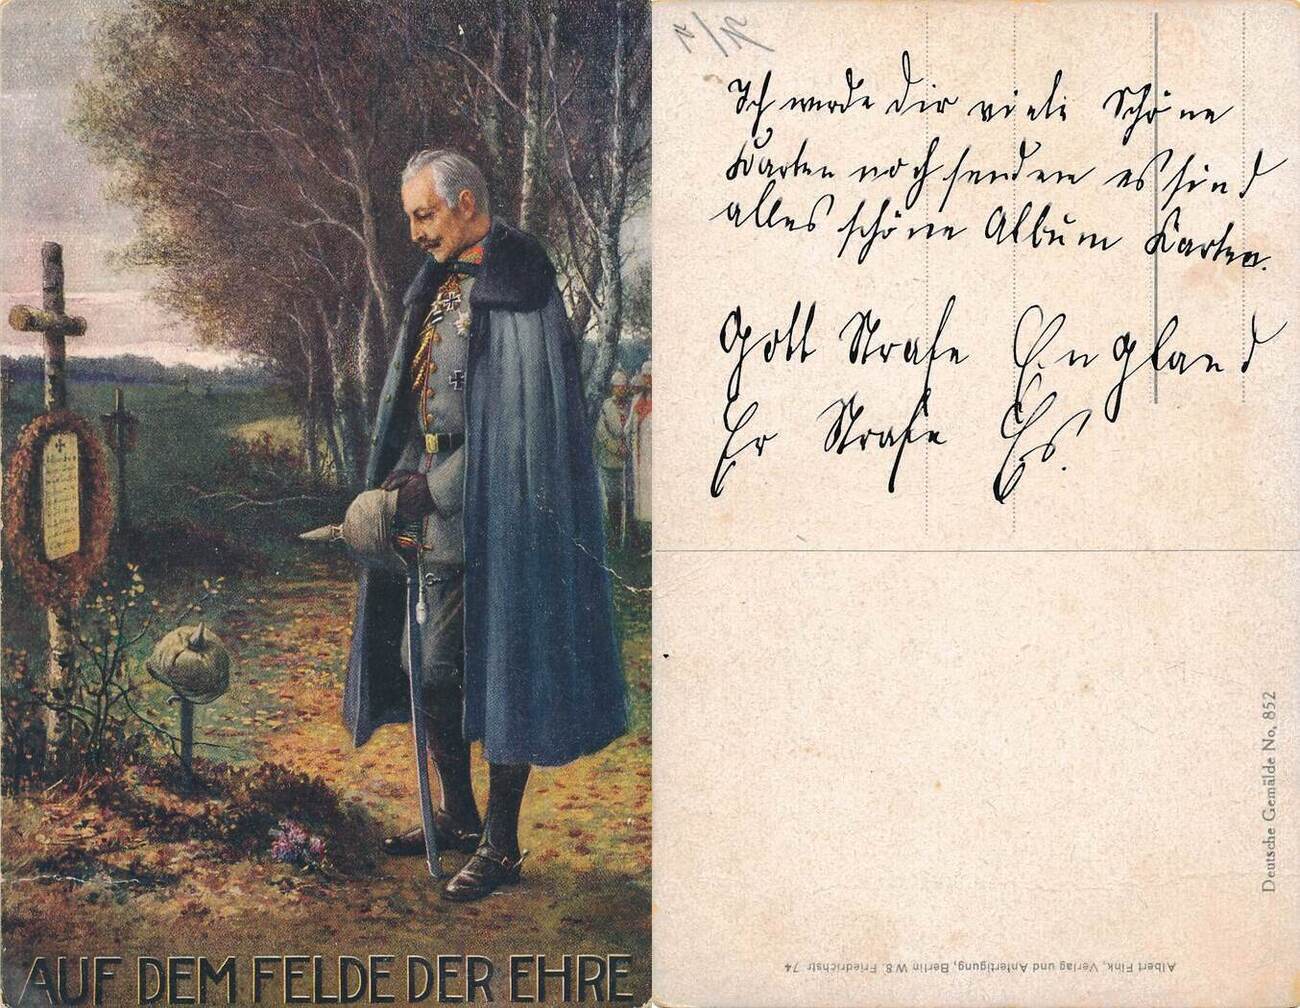 AUF DEM FELDE DER EHRE
Ich werde dir viele Schöne
Karten noch senden es sind
alles schöne Album Karten.
Gott Strafe England
Er Strafe Es.
Deutsche Gemälde No. 852
Albert Fink, Verlag und Anfertigung, Berlin W8. Friedrichstr 74